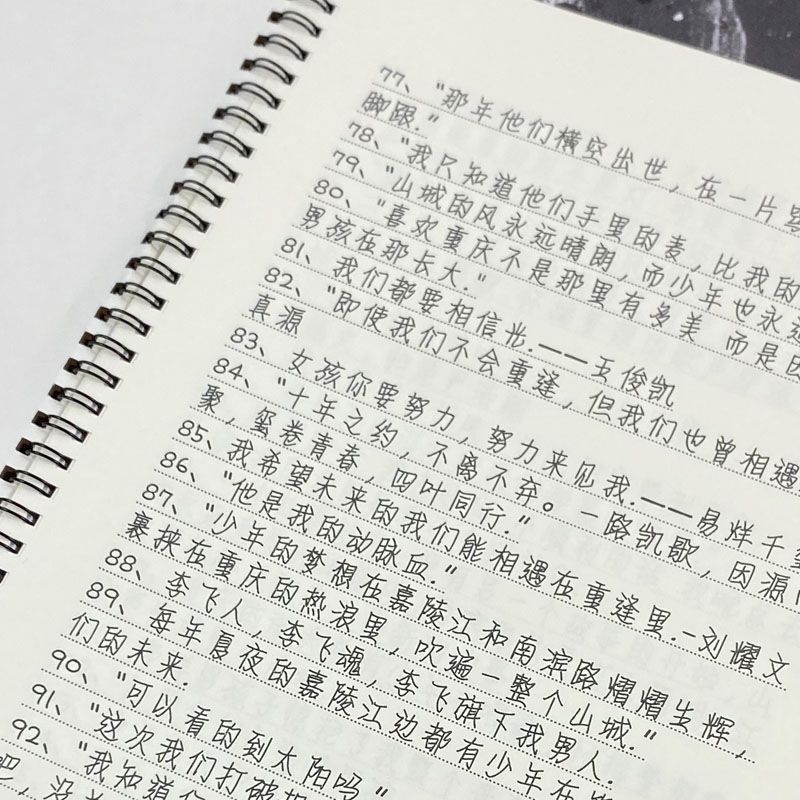 77、"那年他们横空出世，在一片骂
脚跟."
78、"我只知道他们手里的麦，比我的
79、"山城的风永远晴朗，而少年也永远
80、"喜欢重庆不是那里有多美 而是因
男孩在那长大."
81、我们都要相信光.——王俊凯
82、"即使我们不会重逢，但我们也曾相遇
真源
83、女孩你要努力，努力来见我.——易烊千玺
84、"十年之约，不离不弃。一路凯歌，因源
聚，玺卷青春，四叶同行."
85、我希望未来的我们能相遇在重逢里.-刘耀文
86、"他是我的动脉血."
87、"少年的梦想在嘉陵江和南滨路熠熠生辉，
裹挟在重庆的热浪里，吹遍一整个山城."
88、李飞人，李飞魂，李飞旗下我男人.
89、每年夏夜的嘉陵江边都有少年在
们的未来.
90、"可以看的到太阳吗"
91、"这次我们打破
92、"我知道你
吧，没